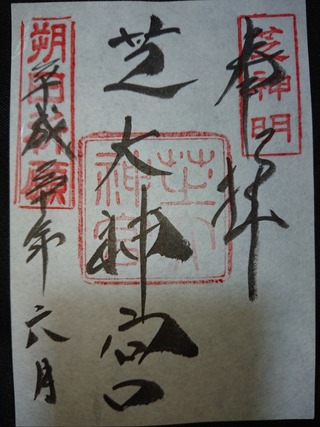 奉拝
芝神明
芝大神宮
芝大神宮
平成 年 六月